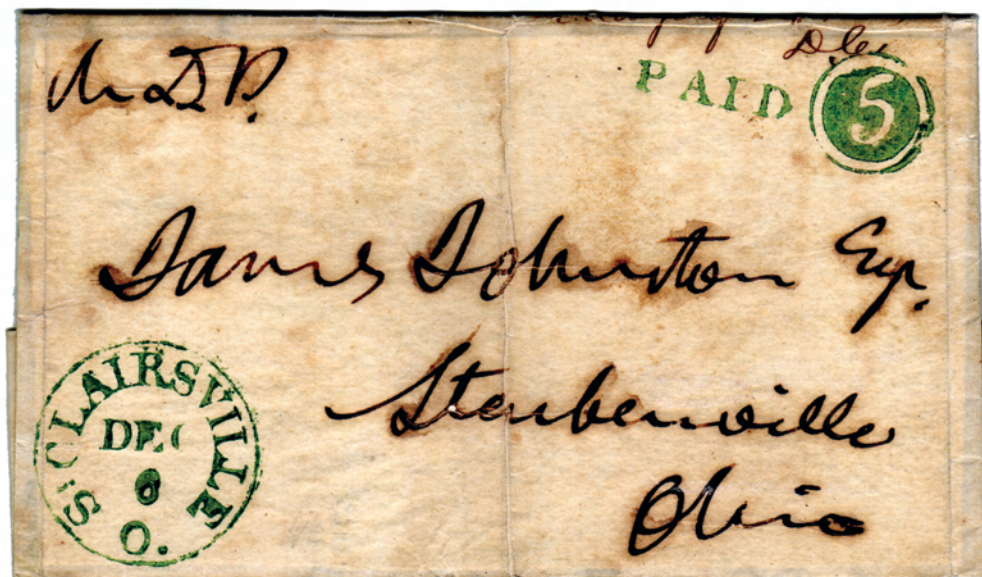 Dec
PAID 5
James Johnston Esqr.
Steubenville
Ohio
St CLAIRSVILLE
DEC
6
O.